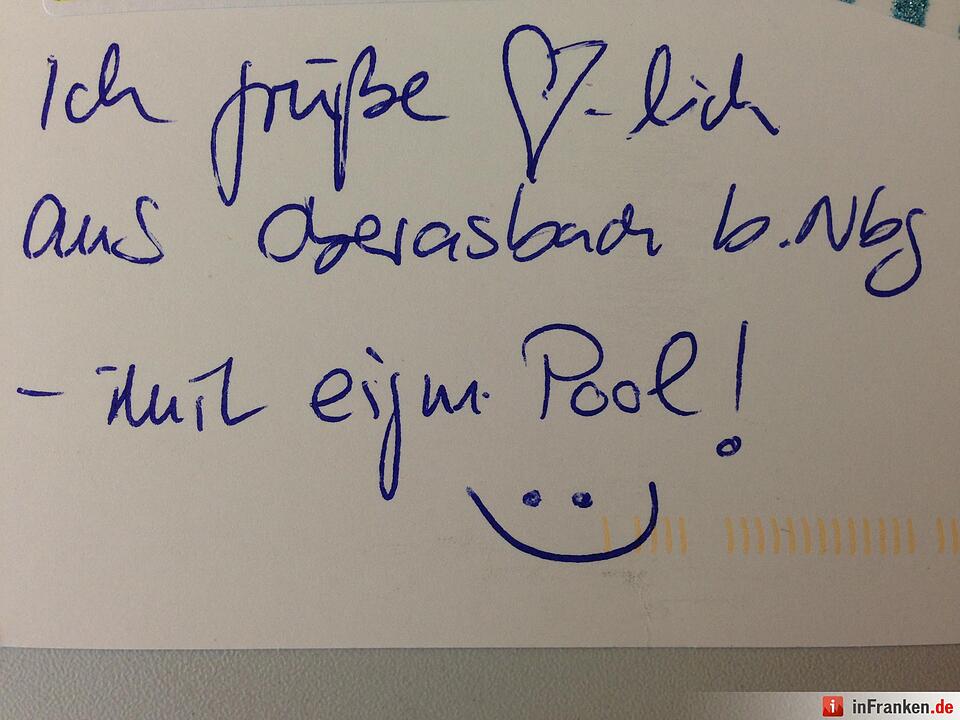 Ich grüße ♡-lich
aus Oberasbach b. Nbg
- mit eigm. Pool!
inFranken.de